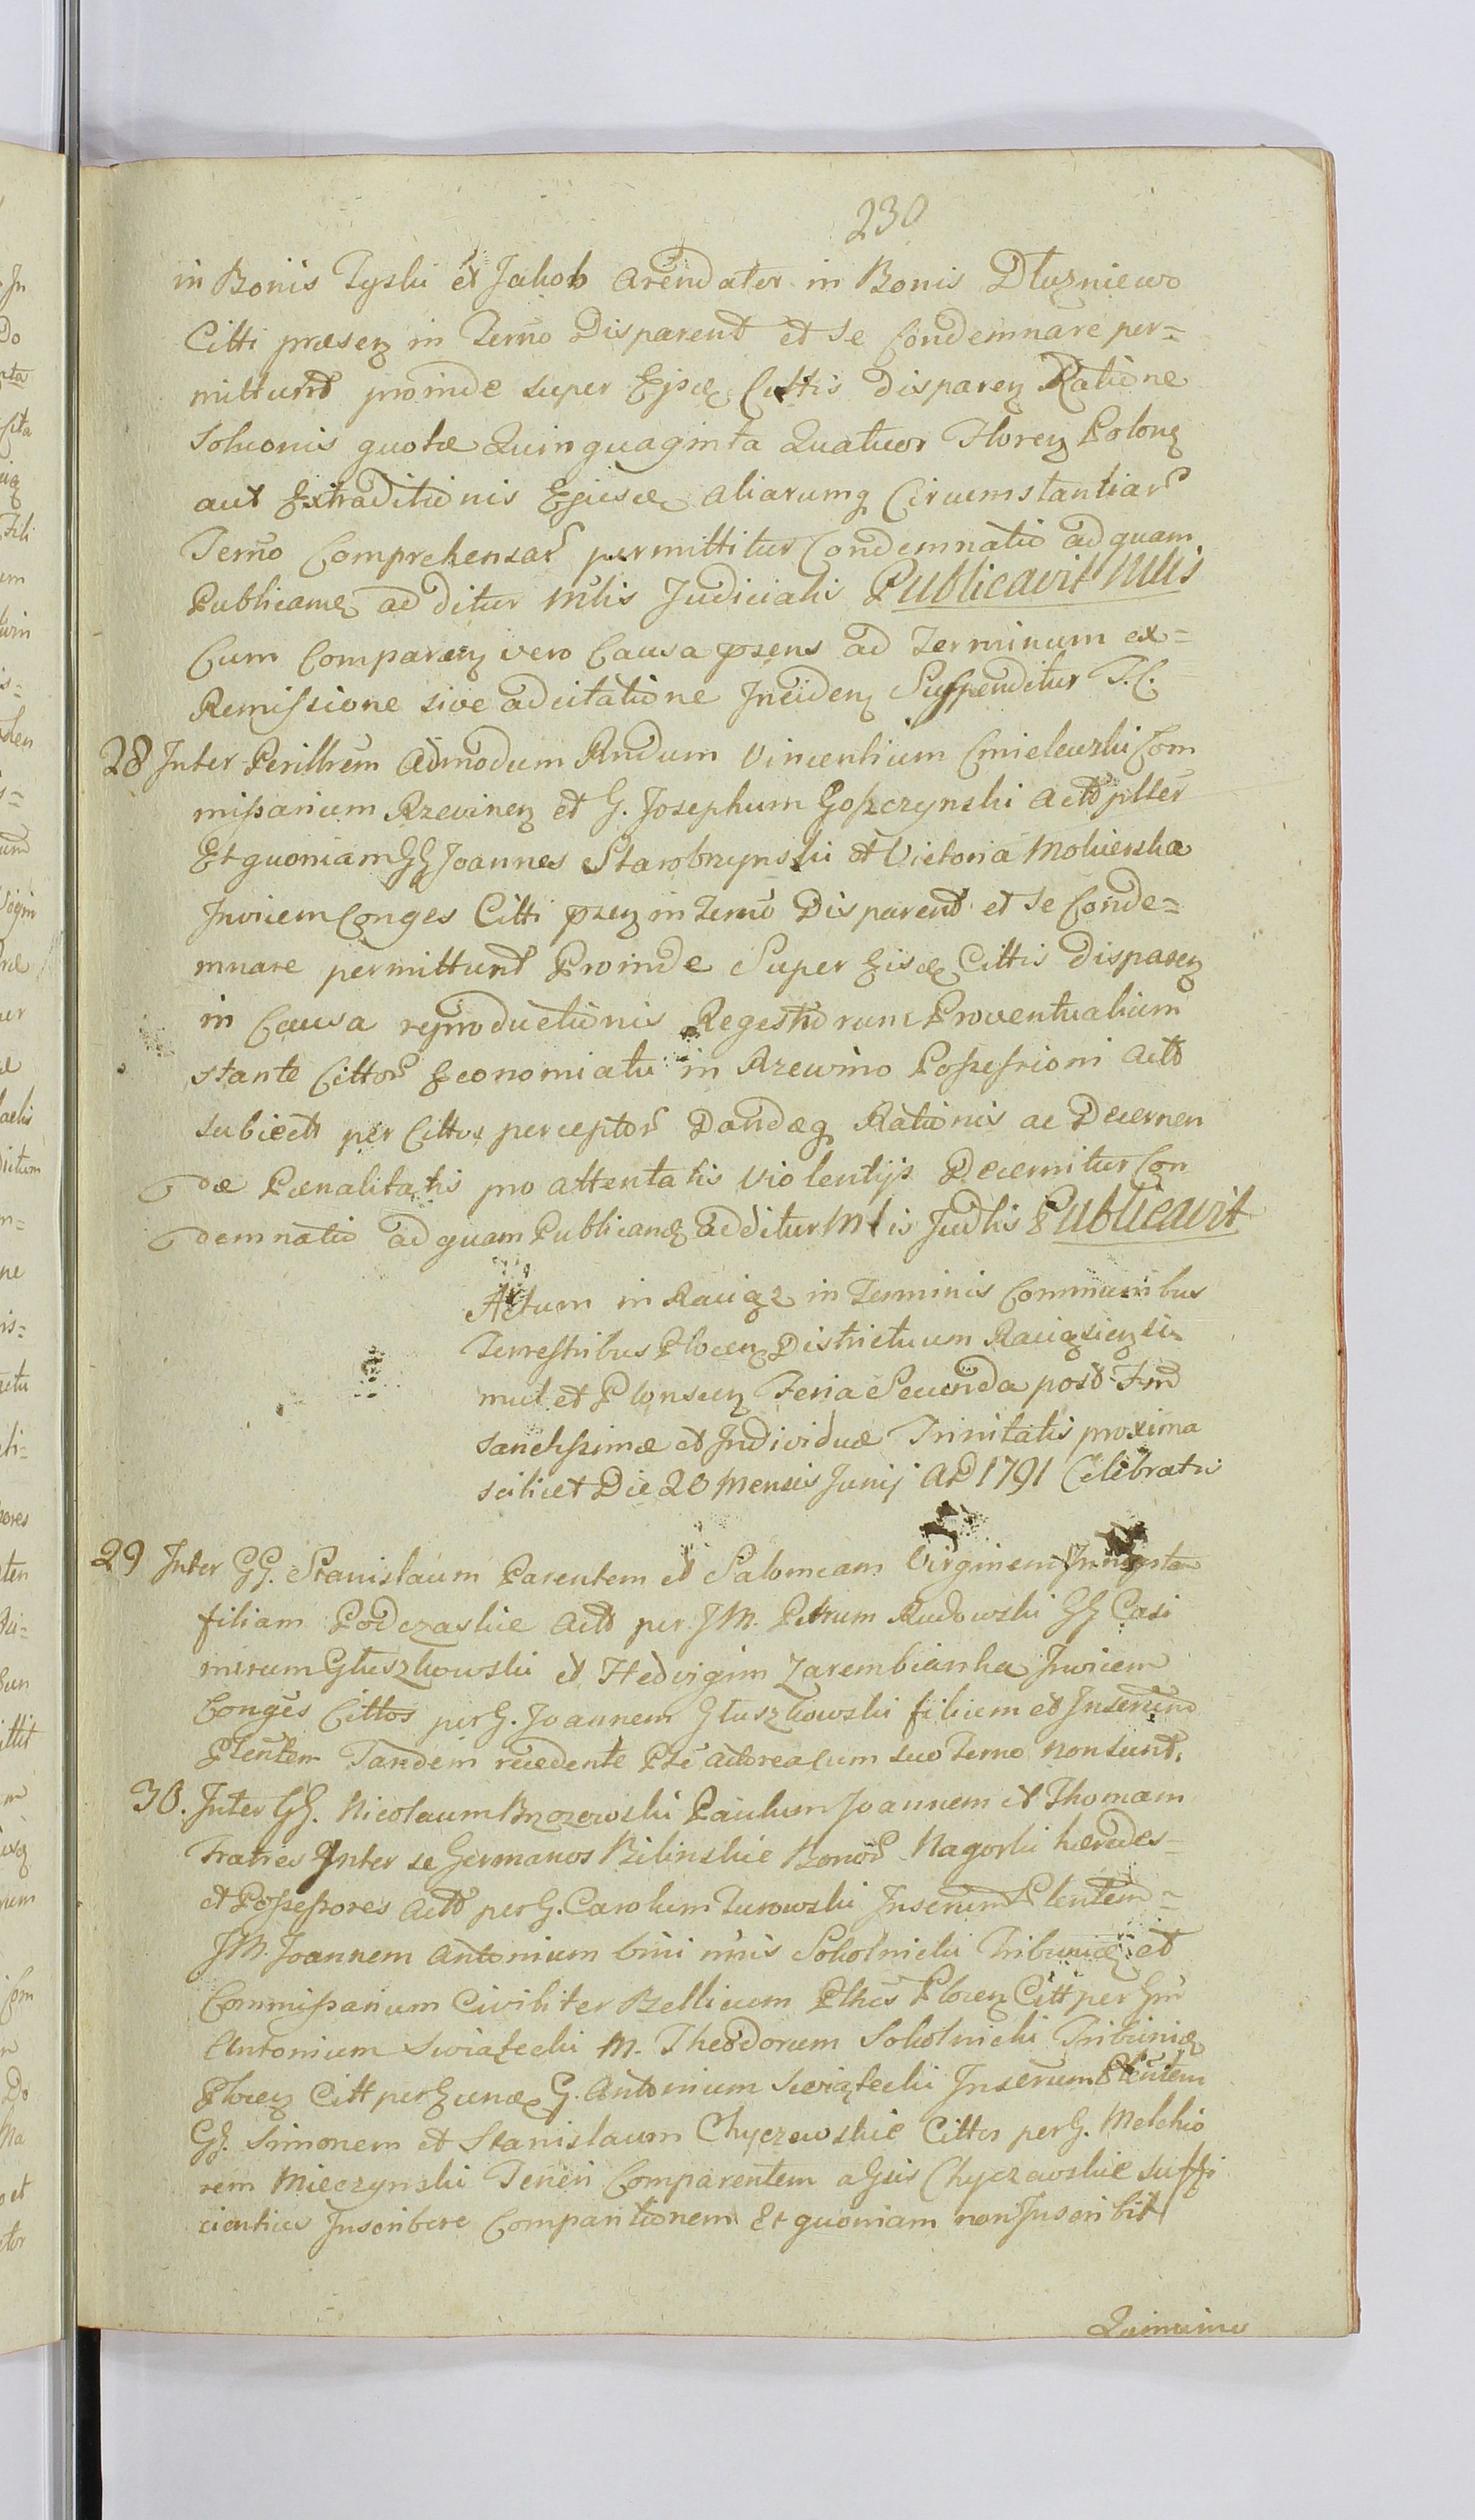 230
in Bonis Tyski et Jakob Arendater in Bonis Dłuzniewo
Citti præsenz in Terno Disparent et se Condemnare per=
mittunt proinde super Ejsdę Cittis disparenz Ratione
Soluonis quotæ Quinquaginta Quatuor Florenz Polonz
aut Extraditionis Ejusdę aliarumq Circumstantiar
Terno Comprehensar permittitur Condemnatio ad quam
Publicanę additur Mlis Judicialis Publicavit Mlis
Cum Comparenz vero Causa pzens ad Terminum ex=
Remissione sive adcitatione Incidenz Suspenditur T. C.
28 Inter Perillrem Admodum Rndum Vincentium Cmielewski Com
missarium Rzevinenz et G. Josephum Goszczynski Act
Et quoniam GG Joannes Starobrzynski et Victoria Mokierska
Invicem Conges Citti pzenz in Terno Disparent et se Conde=
mnare permittunt Proinde Super Eisdę Cittis disparenz
in Causa reproductionis Regestrorum Proventualium
stante Cittor Economiatu in Rzewino Possessioni Act
subiect per Cittos perceptor Dandæq Rationis ac Decernen
dæ Pænalitatis pro attentatis violentijs Decernitur Con
demnatio ad quam Publicandę additur Mlis Judlis Publicavit
Actum in Raciąz in Terminis Communibus
Terrestribus Plocenz Districtuum Raciąsienz si
mul et Plonscenz Feria Secunda post Fm
Sanctissimæ et Individuæ Trinitatis proxima
scilicet Die 20 Mensis Junij AD 1791 Celebratis
29 Inter GG. Stanislaum Parentem et Salomeam Virginem
filiam Podczaskie Act per JM. Petrum Rudowski GG Casi
mirum Głuszkowski et Hedvigim Zarembianka Invicem
Conges Cittos per G. Joannem Głuszkowski filium et Inserund
Plentem Tandem recedente Pte actorea cum suo Terno non sunt.
30. Inter GG. Nicolaum Brzozowski Paulum Joannem et Thomam
Fratres Inter se Germanos Bilinskie Bonor Nagorki hæredes
et Possessores Act per G. Carolum Turowski Inserund Plentem=
JM. Joannem Antonium bini nnis Sokolnicki Tribunid et
Commissarium Civiliter Bellicum Pltus Plocenz Citt per Gm
Antonium Swiątecki M. Theodorum Sokolnicki Tribunidę
Plocenz Citt per Eundę G. Antonium Swiątecki Inserund Plentem
GG. Simonem et Stanislaum Chyczewskie Cittos per G. Melchio
rem Mieczynski Teneri Comparentem a Gsis Chyczewskie suffi
cientius Inscribere Comparitionem Et quoniam non Inscribit
Quinimo